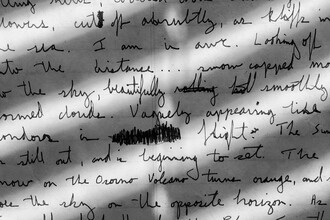 flowers, cut off abruptly, as cliffs in
the sea. I am in awe. Looking off
into the distance... snow capped mo
to the sky, beautifully smoothly
formed clouds. Vaguely appearing like
condors in flight. The su
is still out, and is beginning to set. The
snow on the Osorno Volcano turns orange, and
the sky on the opposite horizon. As